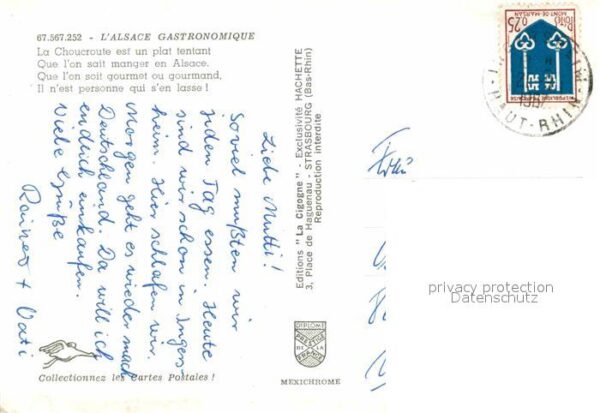 67.567.252 - L'ALSACE GASTRONOMIQUE
La Choucroute est un plat tentant
Que l'on sait manger en Alsace.
Que l'on soit gourmet ou gourmand,
Il n'est personne qui s'en lasse !
Liebe Mutti!
Soviel mußten wir
jeden Tag essen. Heute
sind wir schon in Ingers-
heim. Hier schlafen wir.
Morgen geht es wieder nach
Deutschland. Da will ich
endlich einkaufen.
Viele Grüße
Rainer + Vati
Collectionnez les Cartes Postales !
Editions "La Cigogne" - Exclusivité HACHETTE
3, Place de Haguenau - STRASBOURG (Bas-Rhin)
Reproduction interdite
DIPLOME
PRESTIGE
DE LA
FRANCE
MEXICHROME
0,25
MONT-DE-MARSAN
REPUBLIQUE FRANCAISE
HAUT-RHIN
privacy protection
Datenschutz